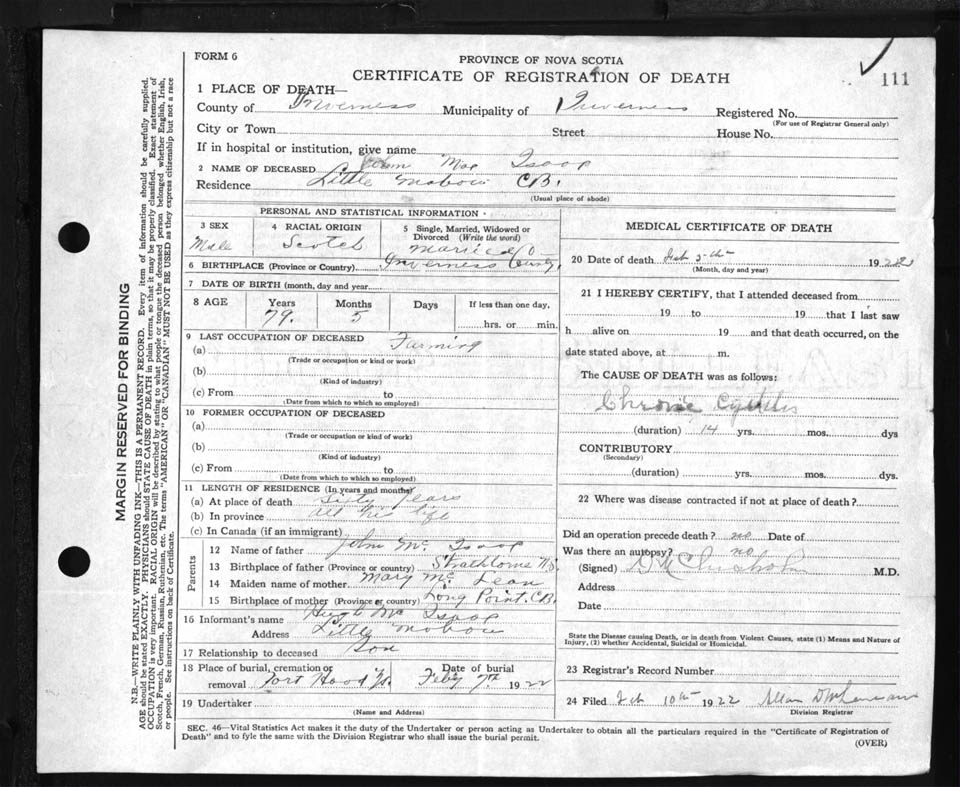 FORM 6
PROVINCE OF NOVA SCOTIA
CERTIFICATE OF REGISTRATION OF DEATH
111
1 PLACE OF DEATH—
County of Inverness Municipality of Inverness Registered No.
(For use of Registrar General only)
City or Town Street House No.
If in hospital or institution, give name
2 NAME OF DECEASED John Mac Isaac
Residence Little Mabou CB.
(Usual place of abode)
PERSONAL AND STATISTICAL INFORMATION
3 SEX
Male
4 RACIAL ORIGIN
Scotch
5 Single, Married, Widowed or Divorced (Write the word)
Married
6 BIRTHPLACE (Province or Country) Inverness County.
7 DATE OF BIRTH (month, day and year)
8 AGE Years Months Days If less than one day,
79. 5 hrs. or min.
9 LAST OCCUPATION OF DECEASED
(a) Farming
(Trade or occupation or kind or work)
(b)
(Kind of industry)
(c) From to
(Date from which to which so employed)
10 FORMER OCCUPATION OF DECEASED
(a)
(Trade or occupation or kind of work)
(b)
(Kind of industry)
(c) From to
(Date from which to which so employed)
11 LENGTH OF RESIDENCE (In years and months)
(a) At place of death years
(b) In province all his life
(c) In Canada (if an immigrant)
Parents
12 Name of father John Mc Isaac
13 Birthplace of father (Province or country) Strathlorne N.S.
14 Maiden name of mother Mary Mc Lean
15 Birthplace of mother (Province or country) Long Point. CB.
16 Informant's name Hugh Mc Isaac
Address Little Mabou
17 Relationship to deceased Son
18 Place of burial, cremation or removal Port Hood Date of burial Feby 7th 1922
19 Undertaker
(Name and Address)
MEDICAL CERTIFICATE OF DEATH
20 Date of death Feb 5th 192
(Month, day and year)
21 I HEREBY CERTIFY, that I attended deceased from
19 to 19 that I last saw
h alive on 19 and that death occurred, on the
date stated above, at m.
The CAUSE OF DEATH was as follows:
Chronic Cystitis
(duration) 14 yrs. mos. dys
CONTRIBUTORY
(Secondary)
(duration) yrs. mos. dys.
22 Where was disease contracted if not at place of death?
Did an operation precede death? no Date of
Was there an autopsy? no
(Signed) Chisholm M.D.
Address
Date
State the Disease causing Death, or in death from Violent Causes, state (1) Means and Nature of
Injury, (2) whether Accidental, Suicidal or Homicidal.
23 Registrar's Record Number
24 Filed Feb 10th 1922 Allan
Division Registrar
SEC. 46—Vital Statistics Act makes it the duty of the Undertaker or person acting as Undertaker to obtain all the particulars required in the "Certificate of Registration of
Death" and to fyle the same with the Division Registrar who shall issue the burial permit.
(OVER)
MARGIN RESERVED FOR BINDING
N.B.—WRITE PLAINLY WITH UNFADING INK—THIS IS A PERMANENT RECORD. Every item of information should be carefully supplied.
AGE should be stated EXACTLY. PHYSICIANS should STATE CAUSE OF DEATH in plain terms, so that it may be properly classified. Exact statement of
OCCUPATION is very important. RACIAL ORIGIN will be described by stating to what people or tongue the deceased person belonged whether English, Irish,
Scotch, French, German, Russian, Ruthenian, etc. The terms "AMERICAN" OR "CANADIAN" MUST NOT BE USED as they express citizenship but not a race
or people. See instructions on back of Certificate.